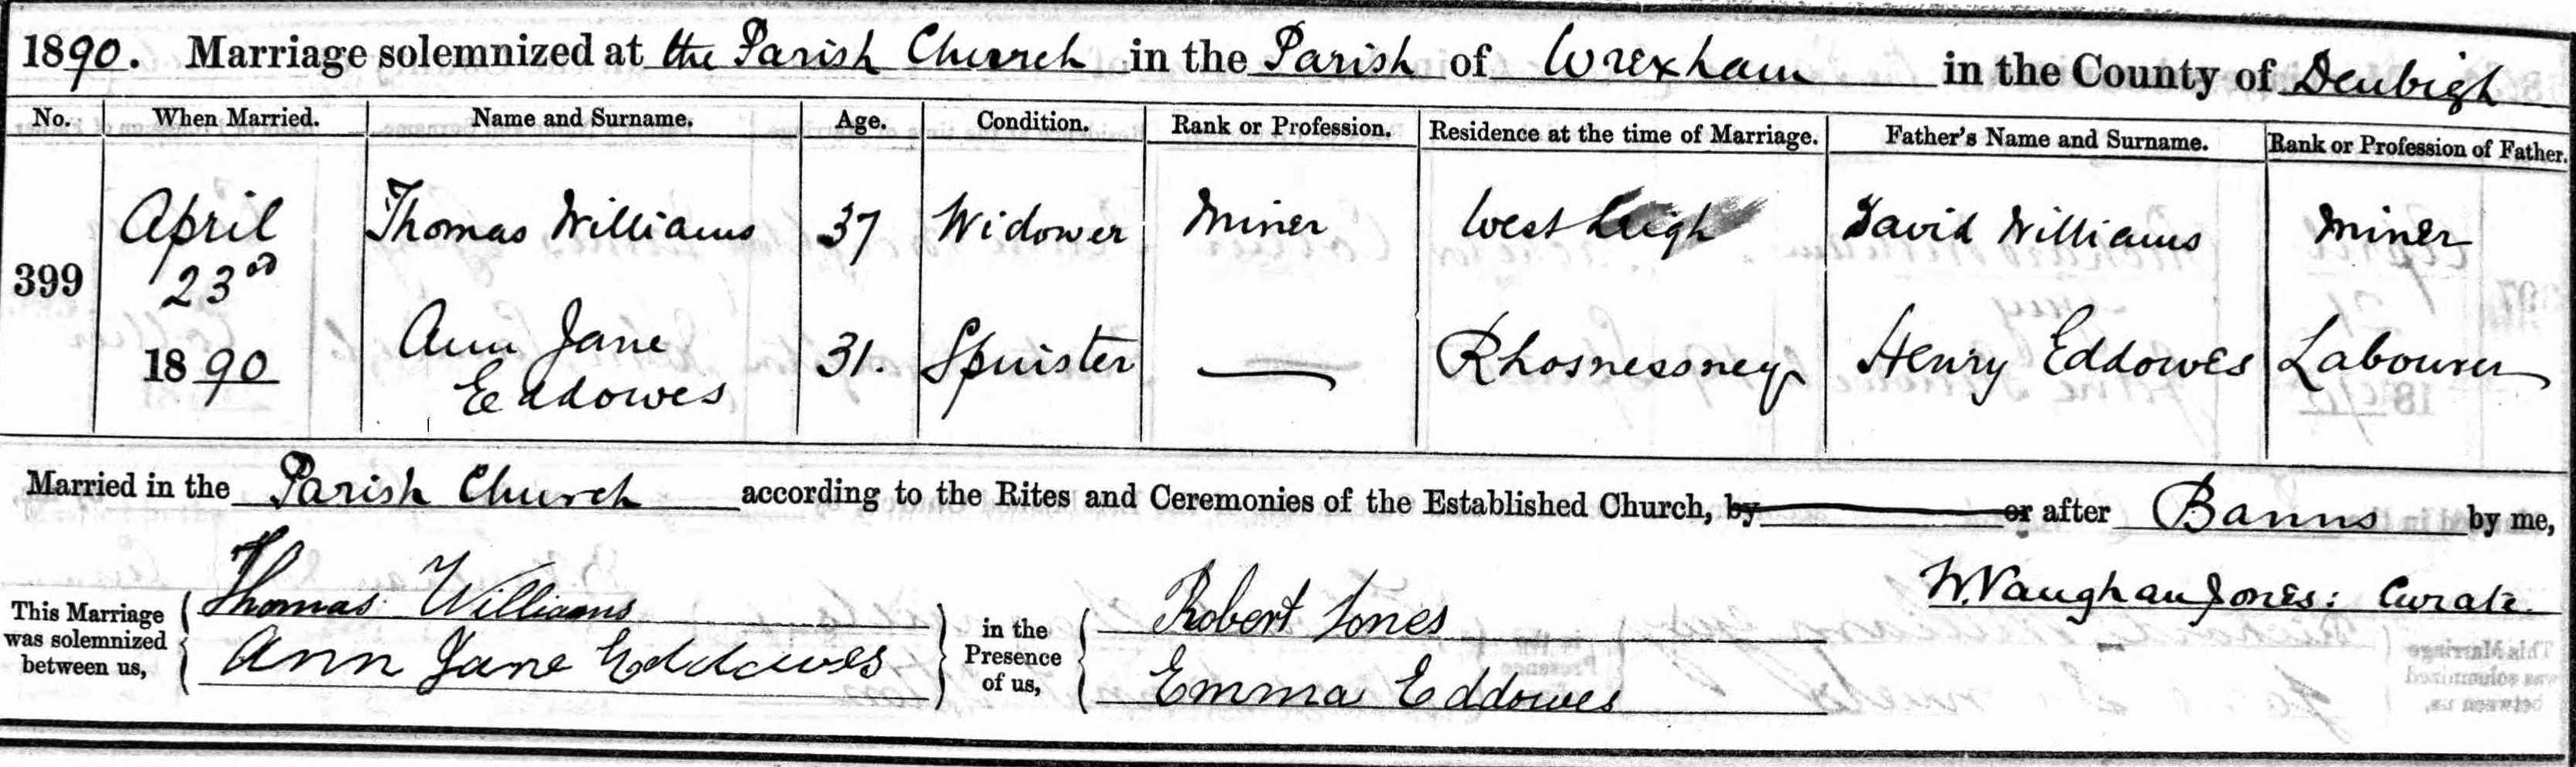 1890. Marriage solemnized at the Parish Church in the Parish of Wrexham in the County of Denbigh
No. When Married. Name and Surname. Age. Condition. Rank or Profession. Residence at the time of Marriage. Father's Name and Surname. Rank or Profession of Father.
399
April 23rd 1890
Thomas Williams 37 Widower Miner West Leigh David Williams Miner
Ann Jane Eddowes 31. Spinster — Rhosnessney Henry Eddowes Labourer
Married in the Parish Church according to the Rites and Ceremonies of the Established Church, by or after Banns by me,
W. Vaughan Jones: Curate.
This Marriage was solemnized between us, Thomas Williams
Ann Jane Eddowes
in the Presence of us, Robert Jones
Emma Eddowes